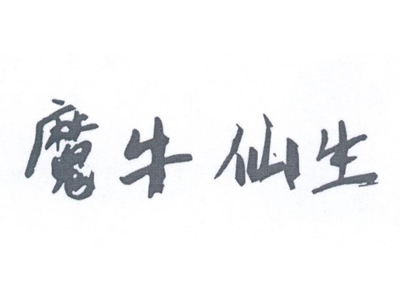 魔牛仙生